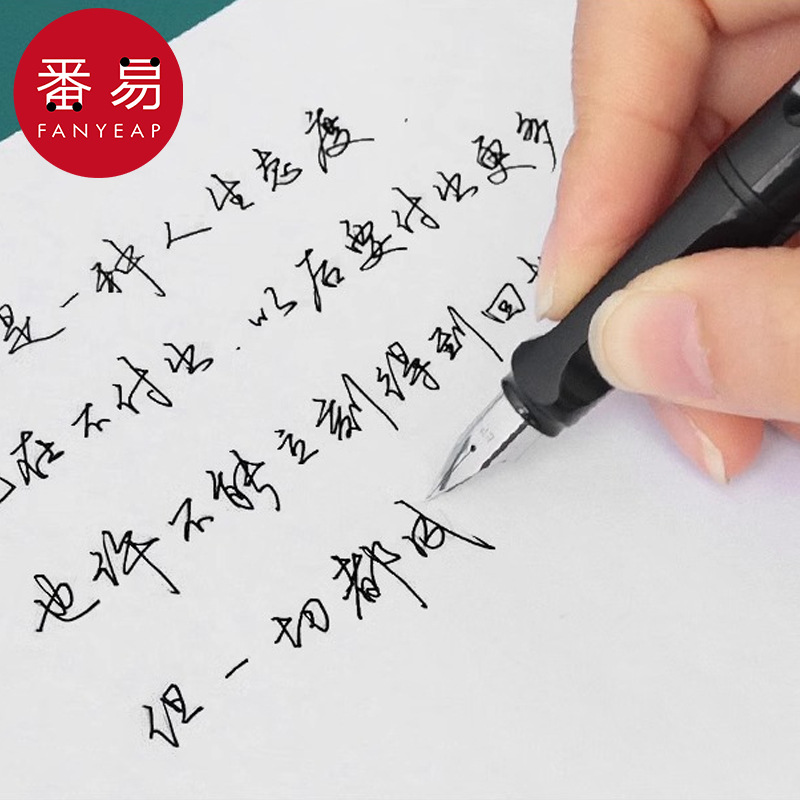 番易
FANYEAP
是一种人生态度.
在不付出.以后要付出更多
也许不能立刻得到回
但一切都成